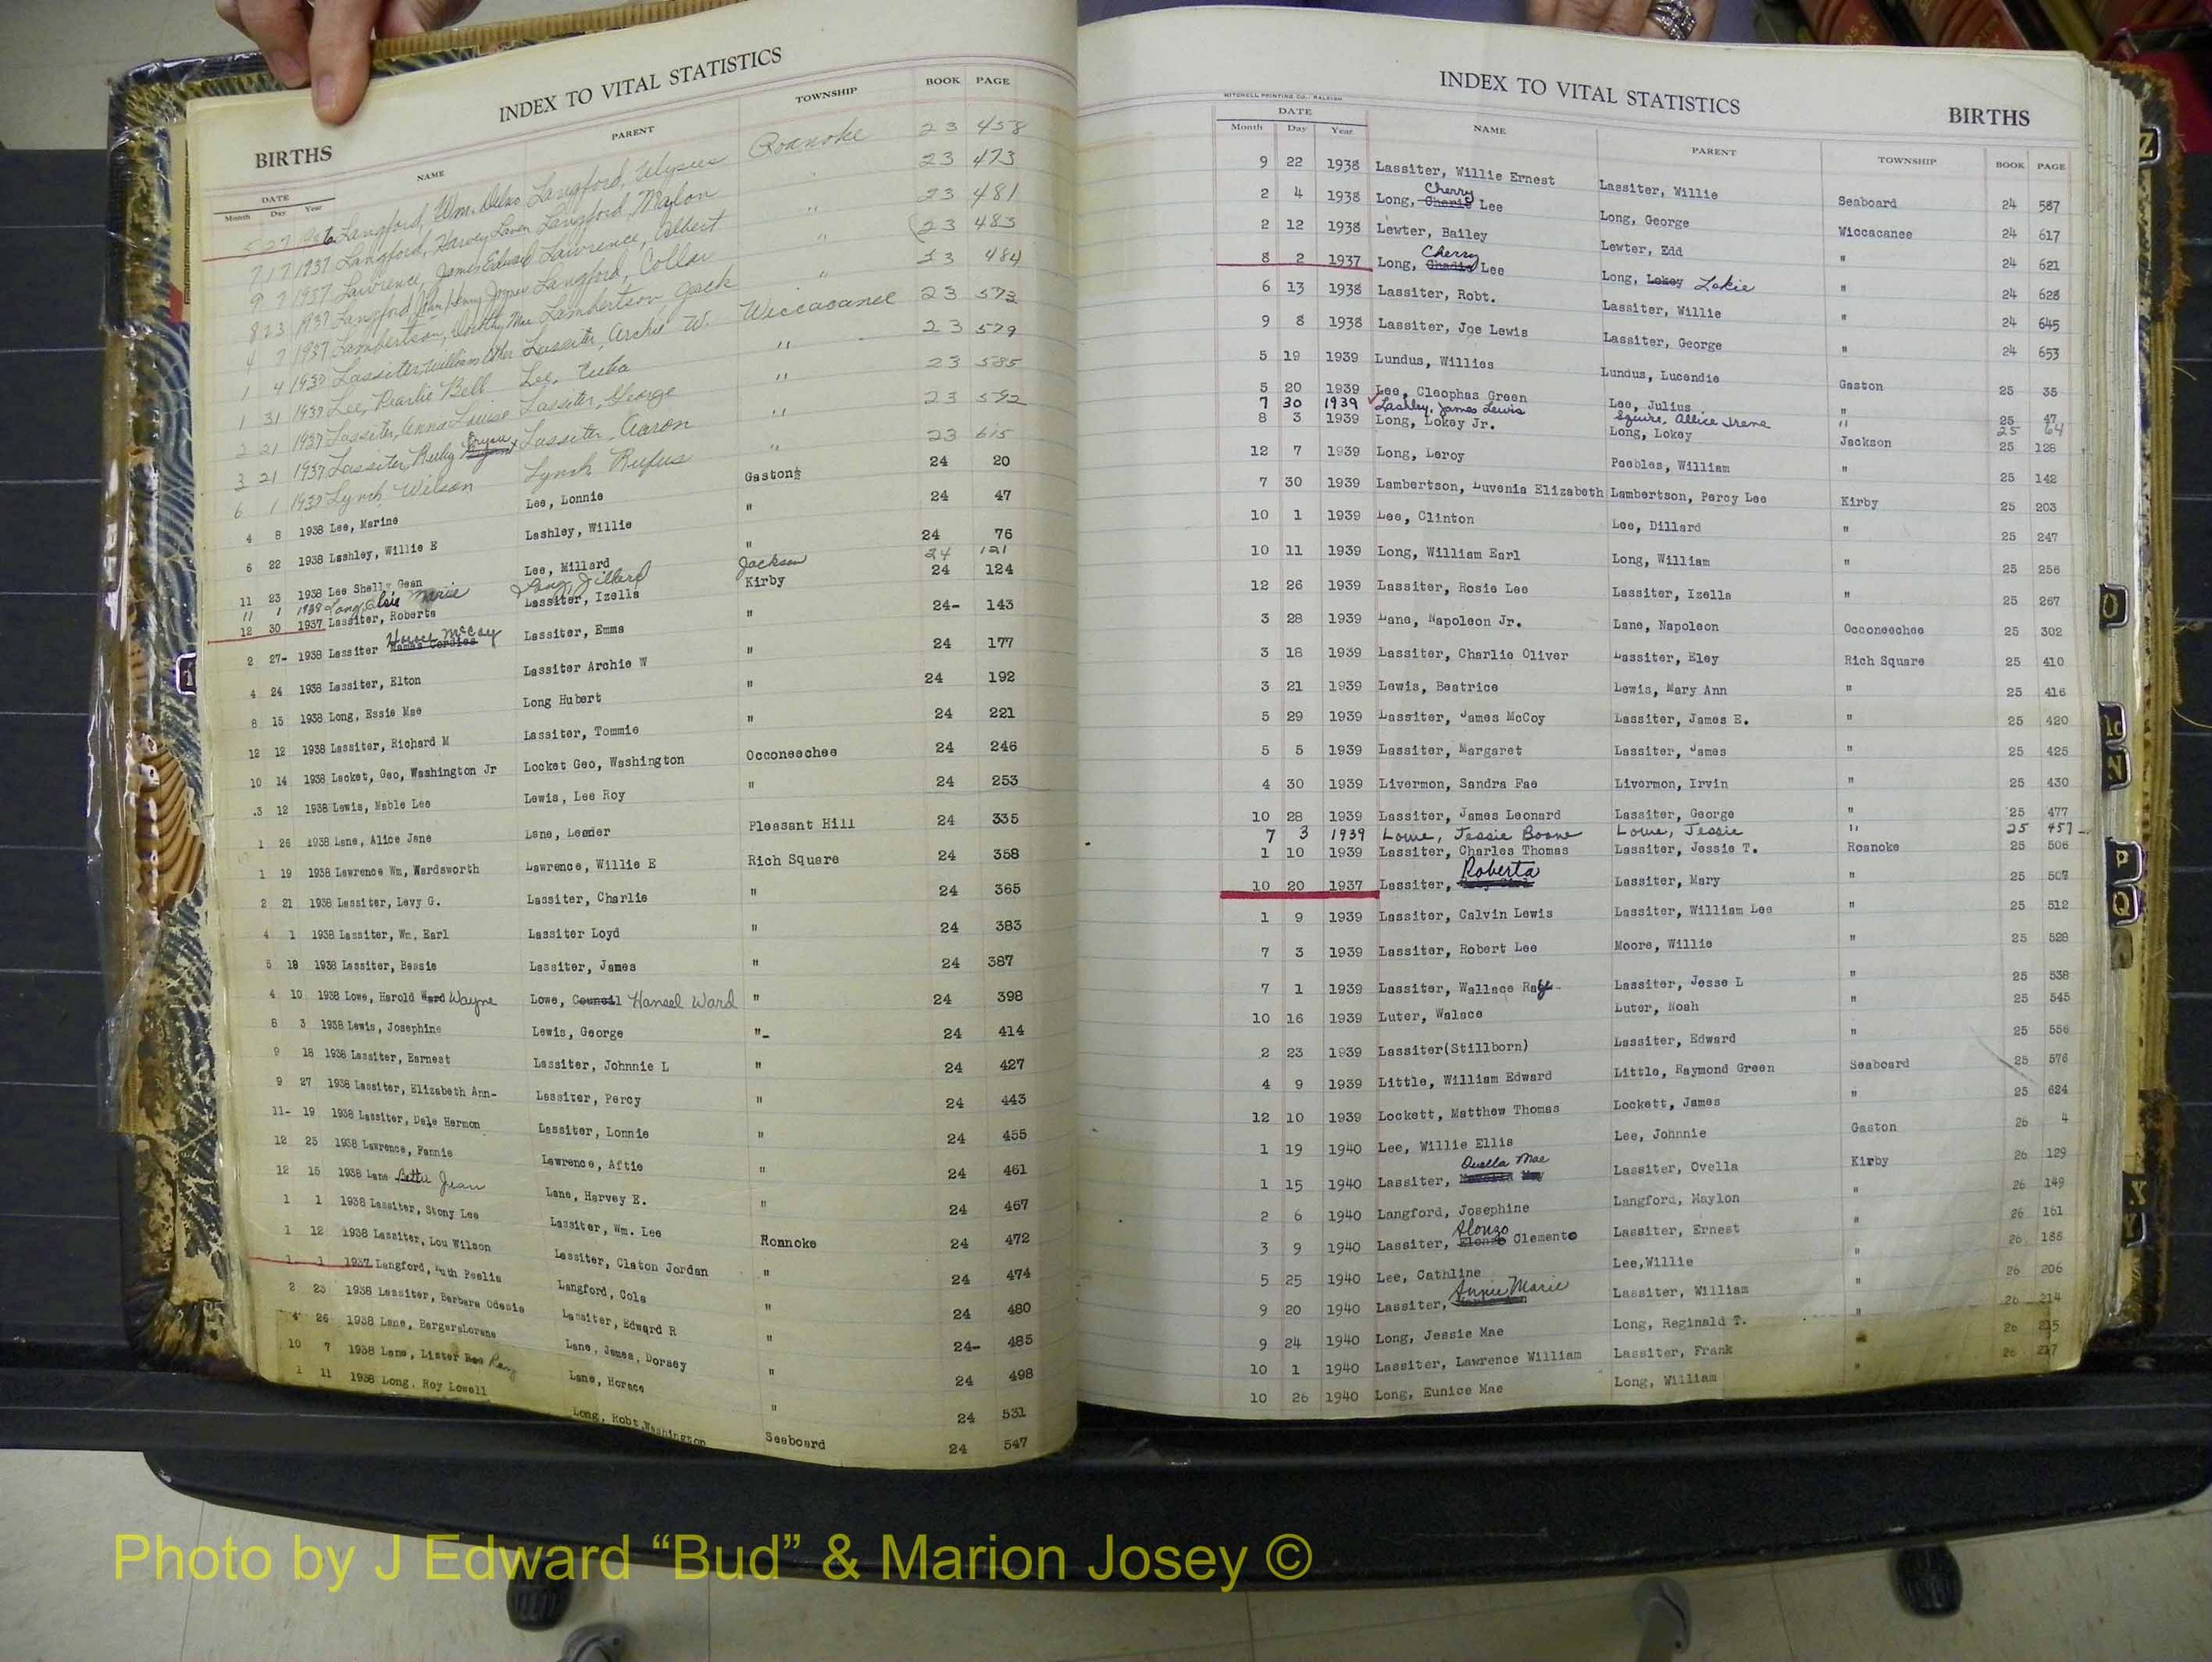 INDEX TO VITAL STATISTICS
BIRTHS
DATE NAME PARENT TOWNSHIP BOOK PAGE
Month Day Year
5 27 1936 Langford, Wm. Langford, Ulysus Roanoke 23 458
7 17 1937 Langford, Harvey Laven Langford, Malon " 23 473
9 7 1937 Lawrence, James Edward Lawrence, Albert " 23 481
8 23 1937 Langford, John Henry Joyner Langford, Collar " 23 483
4 7 1937 Lambertson, Dorothy Mae Lambertson Jack " 23 484
1 4 1937 Lassiter, William Lassiter, Archie W. Wiccacanee 23 573
1 31 1937 Lee, Pearlie Bell Lee, " 23 579
2 21 1937 Lassiter, Anna Louise Lassiter, George " 23 585
3 21 1937 Lassiter, Ruby Lassiter, Aaron " 23 592
6 1 1937 Lynch, Wilson Lynch Rufus " 23 615
4 8 1938 Lee, Marine Lee, Lonnie Gaston 24 20
6 22 1938 Lashley, Willie E Lashley, Willie " 24 47
11 23 1938 Lee Shelly Gean Lee, Millard " 24 76
11 1 1938 Long, Elsie Marie Long, Dillard Jackson 24 121
12 30 1937 Lassiter, Roberta Lassiter, Izella Kirby 24 124
2 27- 1938 Lassiter Horace McCoy Lassiter, Emma " 24- 143
4 24 1938 Lassiter, Elton Lassiter Archie W " 24 177
8 15 1938 Long, Essie Mae Long Hubert " 24 192
12 12 1938 Lassiter, Richard M Lassiter, Tommie " 24 221
10 14 1938 Locket, Geo, Washington Jr Locket Geo, Washington Occoneechee 24 246
.3 12 1938 Lewis, Mable Lee Lewis, Lee Roy " 24 253
1 26 1938 Lane, Alice Jane Lane, Leander Pleasant Hill 24 335
1 19 1938 Lawrence Wm, Wardsworth Lawrence, Willie E Rich Square 24 358
2 21 1938 Lassiter, Levy G. Lassiter, Charlie " 24 365
4 1 1938 Lassiter, Wm. Earl Lassiter Loyd " 24 383
5 18 1938 Lassiter, Bessie Lassiter, James " 24 387
4 10 1938 Lowe, Harold Ward Wayne Lowe, Council Hansel Ward " 24 398
8 3 1938 Lewis, Josephine Lewis, George "- 24 414
9 18 1938 Lassiter, Earnest Lassiter, Johnnie L " 24 427
9 27 1938 Lassiter, Elizabeth Ann- Lassiter, Percy " 24 443
11- 19 1938 Lassiter, Dale Hermon Lassiter, Lonnie " 24 455
12 25 1938 Lawrence, Fannie Lawrence, Aftie " 24 461
12 15 1938 Lane Bettie Jean Lane, Harvey E. " 24 467
1 1 1938 Lassiter, Stony Lee Lassiter, Wm. Lee Roanoke 24 472
1 12 1938 Lassiter, Lou Wilson Lassiter, Claton Jordan " 24 474
1 1 1937 Langford, Ruth Peelia Langford, Cola " 24 480
2 23 1938 Lassiter, Barbara Odessie Lassiter, Edward R " 24- 485
4 26 1938 Lane, BargersLorane Lane, James, Dorsey " 24 498
10 7 1938 Lane, Lister Rae Lane, Horace " 24 531
1 11 1938 Long, Roy Lowell Long, Robt, Washington Seaboard 24 547
MITCHELL PRINTING CO., RALEIGH
INDEX TO VITAL STATISTICS
BIRTHS
DATE NAME PARENT TOWNSHIP BOOK PAGE
Month Day Year
9 22 1938 Lassiter, Willie Ernest Lassiter, Willie Seaboard 24 587
2 4 1938 Long, Cherry Lee Long, George Wiccacanee 24 617
2 12 1938 Lewter, Bailey Lewter, Edd " 24 621
8 2 1937 Long, Cherry Lee Long, Lokey Lokie " 24 628
6 13 1938 Lassiter, Robt. Lassiter, Willie " 24 645
9 8 1938 Lassiter, Joe Lewis Lassiter, George " 24 653
5 19 1939 Lundus, Willies Lundus, Lucendie Gaston 25 35
5 20 1939 Lee, Cleophas Green Lee, Julius " 25 47
7 30 1939 Lashley, James Lewis Squire, Allice Irene " 25 64
8 3 1939 Long, Lokey Jr. Long, Lokey Jackson 25 128
12 7 1939 Long, Leroy Peebles, William " 25 142
7 30 1939 Lambertson, Luvenia Elizabeth Lambertson, Percy Lee Kirby 25 203
10 1 1939 Lee, Clinton Lee, Dillard " 25 247
10 11 1939 Long, William Earl Long, William " 25 256
12 26 1939 Lassiter, Rosie Lee Lassiter, Izella " 25 267
3 28 1939 Lane, Napoleon Jr. Lane, Napoleon Occoneechee 25 302
3 18 1939 Lassiter, Charlie Oliver Lassiter, Eley Rich Square 25 410
3 21 1939 Lewis, Beatrice Lewis, Mary Ann " 25 416
5 29 1939 Lassiter, James McCoy Lassiter, James E. " 25 420
5 5 1939 Lassiter, Margaret Lassiter, James " 25 425
4 30 1939 Livermon, Sandra Fae Livermon, Irvin " 25 430
10 28 1939 Lassiter, James Leonard Lassiter, George " 25 477
7 3 1939 Lowe, Jessie Boone Lowe, Jessie " 25 457
1 10 1939 Lassiter, Charles Thomas Lassiter, Jessie T. Roanoke 25 506
10 20 1937 Lassiter, Roberta Lassiter, Mary " 25 507
1 9 1939 Lassiter, Calvin Lewis Lassiter, William Lee " 25 512
7 3 1939 Lassiter, Robert Lee Moore, Willie " 25 528
7 1 1939 Lassiter, Wallace Lassiter, Jesse L " 25 538
10 16 1939 Luter, Walace Luter, Noah " 25 545
2 23 1939 Lassiter(Stillborn) Lassiter, Edward " 25 556
4 9 1939 Little, William Edward Little, Raymond Green Seaboard 25 576
12 10 1939 Lockett, Matthew Thomas Lockett, James " 25 624
1 19 1940 Lee, Willie Ellis Lee, Johnnie Gaston 26 4
1 15 1940 Lassiter, Ouella Mae Lassiter, Ovella Kirby 26 129
2 6 1940 Langford, Josephine Langford, Maylon " 26 149
3 9 1940 Lassiter, Alonzo Clemento Lassiter, Ernest " 26 161
5 25 1940 Lee, Cathline Lee,Willie " 26 185
9 20 1940 Lassiter, Annie Marie Lassiter, William " 26 206
9 24 1940 Long, Jessie Mae Long, Reginald T. " 26 214
10 1 1940 Lassiter, Lawrence William Lassiter, Frank " 26 215
10 26 1940 Long, Eunice Mae Long, William " 26 217
Z
O
M
N
P
Q
X
Y
Photo by J Edward “Bud” & Marion Josey ©